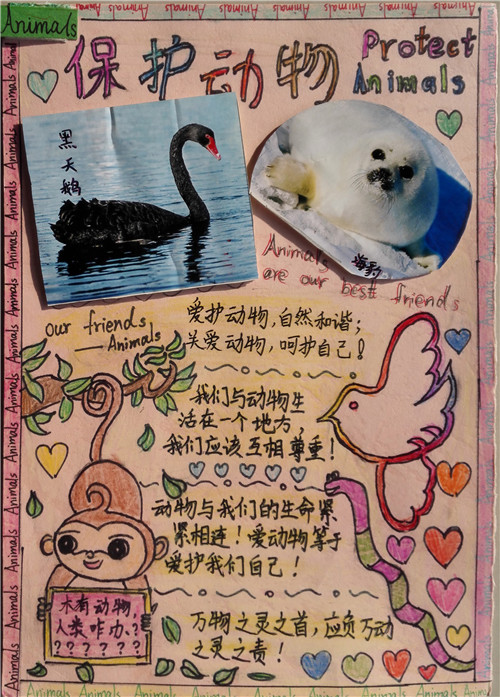 Animals
保护动物
Protect
Animals
黑天鹅
海豹
Animals
are our best friends
our friends
—Animals
爱护动物,自然和谐;
关爱动物,呵护自己!
我们与动物生
活在一个地方,
我们应该互相尊重!
动物与我们的生命紧
紧相连!爱动物等于
爱护我们自己!
没有动物,
人类咋办?
??????
万物之灵之首,应负万动
之灵之责!